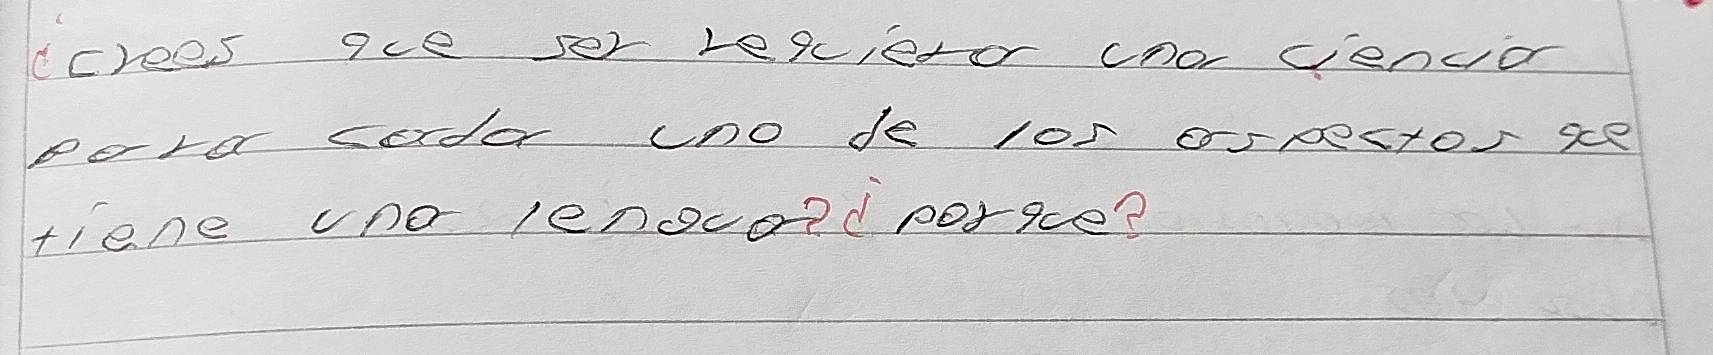 ¿crees que ser requiera una ciencia
para cada uno de los aspectos que
tiene una lengua? ¿porque?